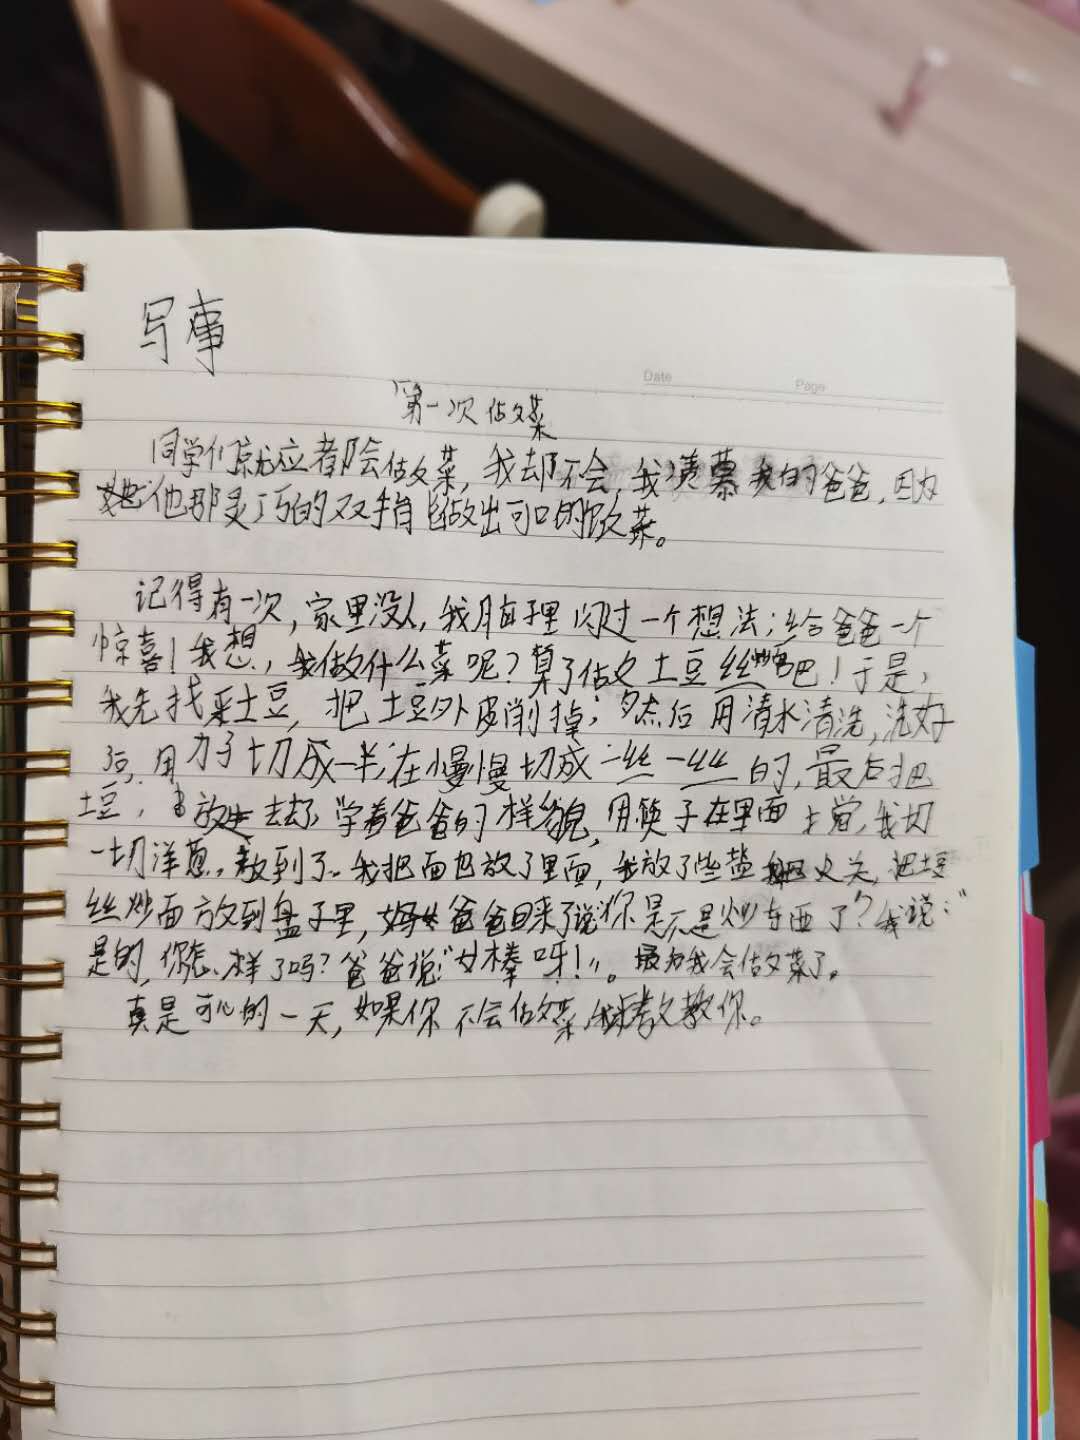 写事
Date Page
第一次做菜
同学们就应都会做菜，我却不会，我羡慕我的爸爸，因为
他那灵巧的双手能做出可口的饭菜。
记得有一次，家里没人，我脑子里闪过一个想法；给爸爸一个
惊喜！我想，我做什么菜呢？算了做土豆丝炒面吧！于是，
我先找来土豆，把土豆外皮削掉；然后用清水清洗，洗好
后，用刀子切成一半；在慢慢切成一丝一丝的，最后把
土豆，放进去了，学着爸爸的样貌，用筷子在里面搅，我切
一切洋葱，放到了。我把面也放了里面，我放了些盐把火关，把土豆
丝炒面放到盘子里，爸爸回来了说"你是不是炒东西了？我说："
是的，你怎样了吗？爸爸说："女棒呀！"。最后我会做菜了。
真是可心的一天，如果你不会做菜，我来教教你。